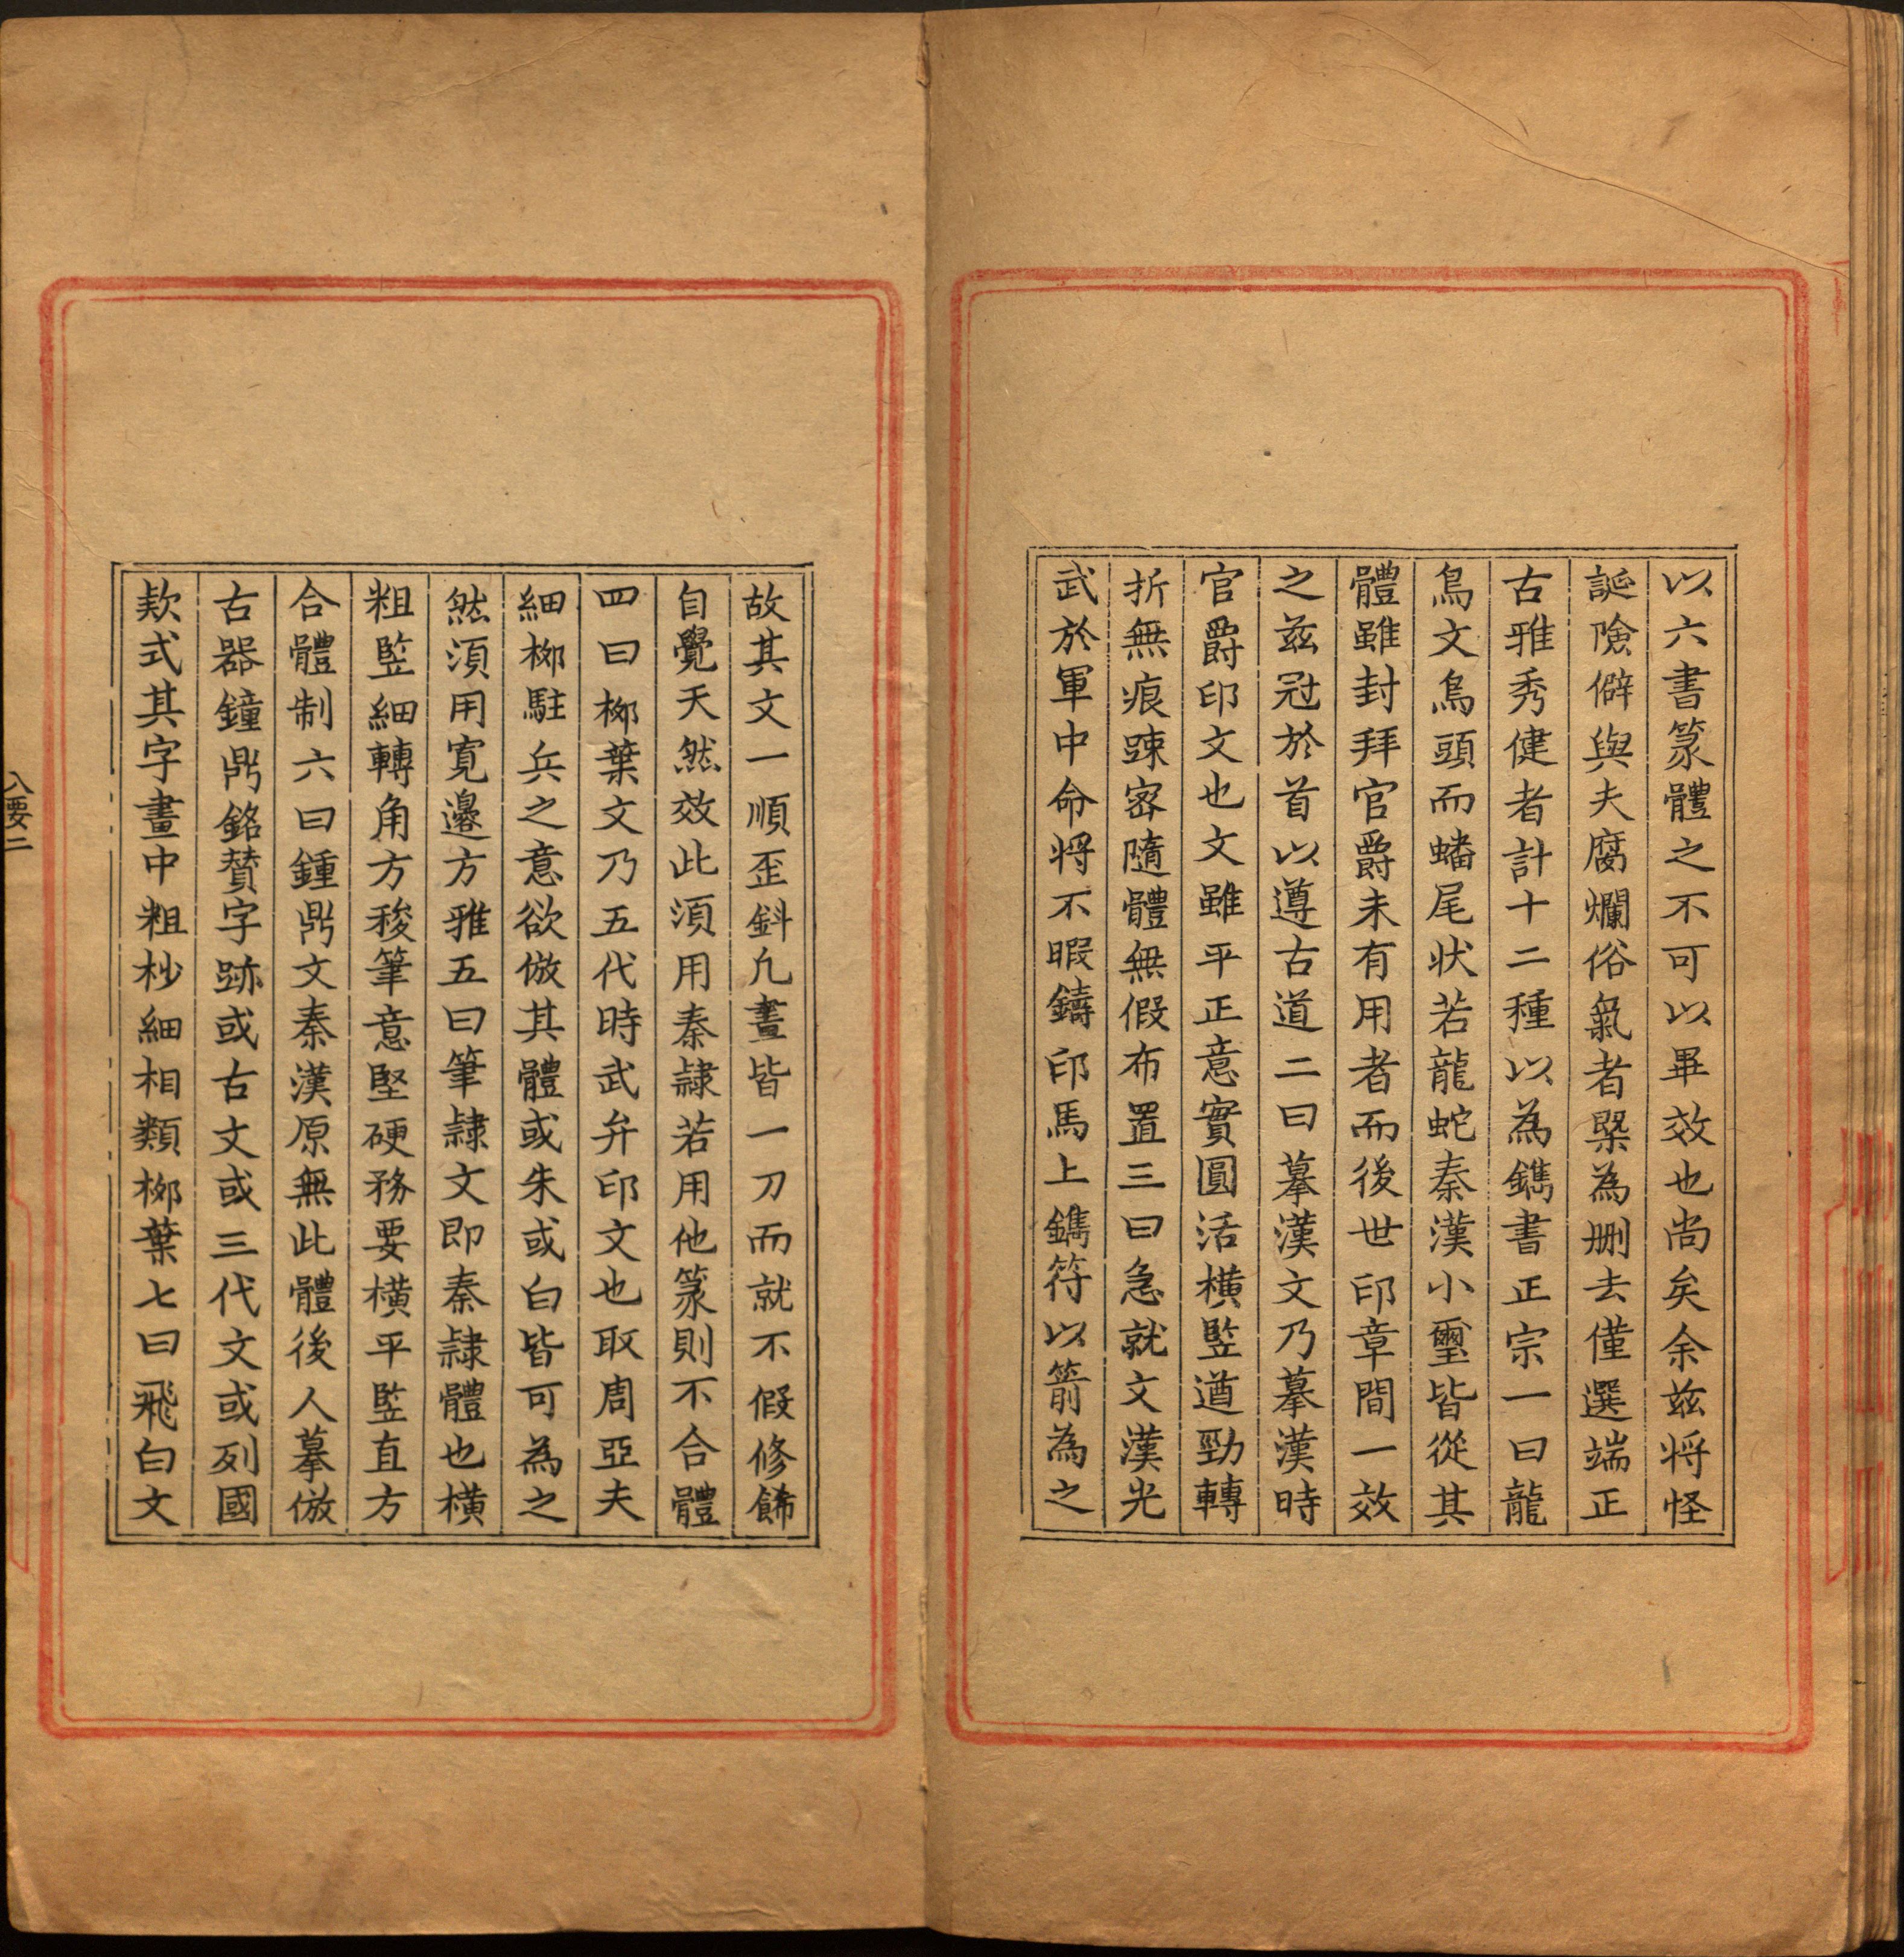 以六書篆體之不可以畢效也尚矣余茲将怪
誕險僻與夫腐爛俗氣者槩為刪去僅選端正
古雅秀健者計十二種以為鐫書正宗一曰龍
鳥文鳥頭而蟠尾状若龍蛇秦漢小璽皆從其
體雖封拜官爵未有用者而後世印章間一效
之茲冠於首以遵古道二曰摹漢文乃摹漢時
官爵印文也文雖平正意實圓活橫竪遒勁轉
折無痕踈宻隨體無假布置三曰急就文漢光
武於軍中命将不暇鑄印馬上鐫符以箭為之
故其文一順歪斜凢畫皆一刀而就不假修餙
自覺天然效此湏用秦隷若用他篆則不合體
四曰栁葉文乃五代時武弁印文也取周亞夫
細栁駐兵之意欲倣其體或朱或白皆可為之
然湏用寛邉方雅五曰筆隷文即秦隷體也橫
粗竪細轉角方稜筆意堅硬務要橫平竪直方
合體制六曰鍾鼎文秦漢原無此體後人摹倣
古器鐘鼎銘賛字跡或古文或三代文或列國
欵式其字畫中粗杪細相類栁葉七曰飛白文
八要二